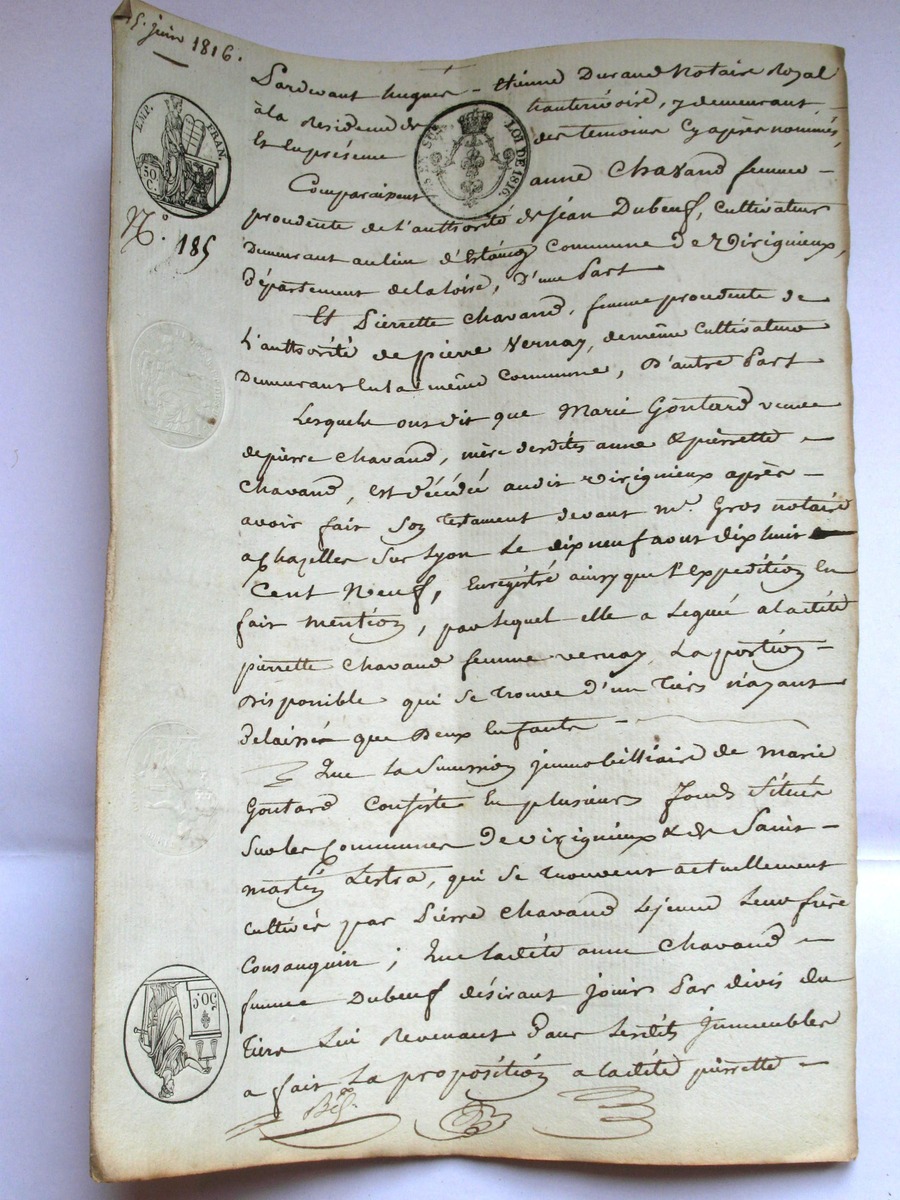 15. juin 1816.
Pardevant hugues – Etienne Durand Notaire Royal
à la Residence de hauterivoire, y demeurant –
Et En présence des temoins Cy après nommés,
Comparaissent anne Chavand femme –
procedente de l'authorité de jean Dubeuf, cultivateur
Demeurant au lieu d' Commune de Virignieux,
Département de la Loire, D'une Part
Et Pierrette Chavand, femme procedente de
L'authorité de pierre Vernay, de même Cultivateur
Demeurant En la même Commune, D'autre Part
Lesquels ont dit que Marie Goutard veuve
de pierre Chavand, mère desdites anne & pierrette –
Chavand, est décédée audit Virignieux après –
avoir fait Son Testament devant me. Gros notaire
a Chazelles Sur Lyon Le dix neuf aout dix huit –
Cent Neuf, Enregistré ainsy que l'Expedition En
fait mention, par Lequel elle a Legué a ladite
pierrette Chavand femme vernay La portion –
Disponible qui Se trouve d'un Tiers n'ayant
Delaissé que Deux Enfants –
Que La Succession immobilliaire de marie
Goutard Consiste En plusieurs fonds Situés
Sur les Communes de virignieux & de Saint –
martin Lestra, qui Se trouvent actuellement
Cultivés par Pierre Chavand Lejeune Leur frère
Consanguin ; Que Ladite anne Chavand –
femme Dubeuf désirant jouir Par divis du
Tiers Lui Revenant Dans Lesdits Immeubles
a fait La proposition a ladite pierrette –
EMP. FRAN.
50 C.
EN SUS. LOI DE 1816.
No. 185
50 C.